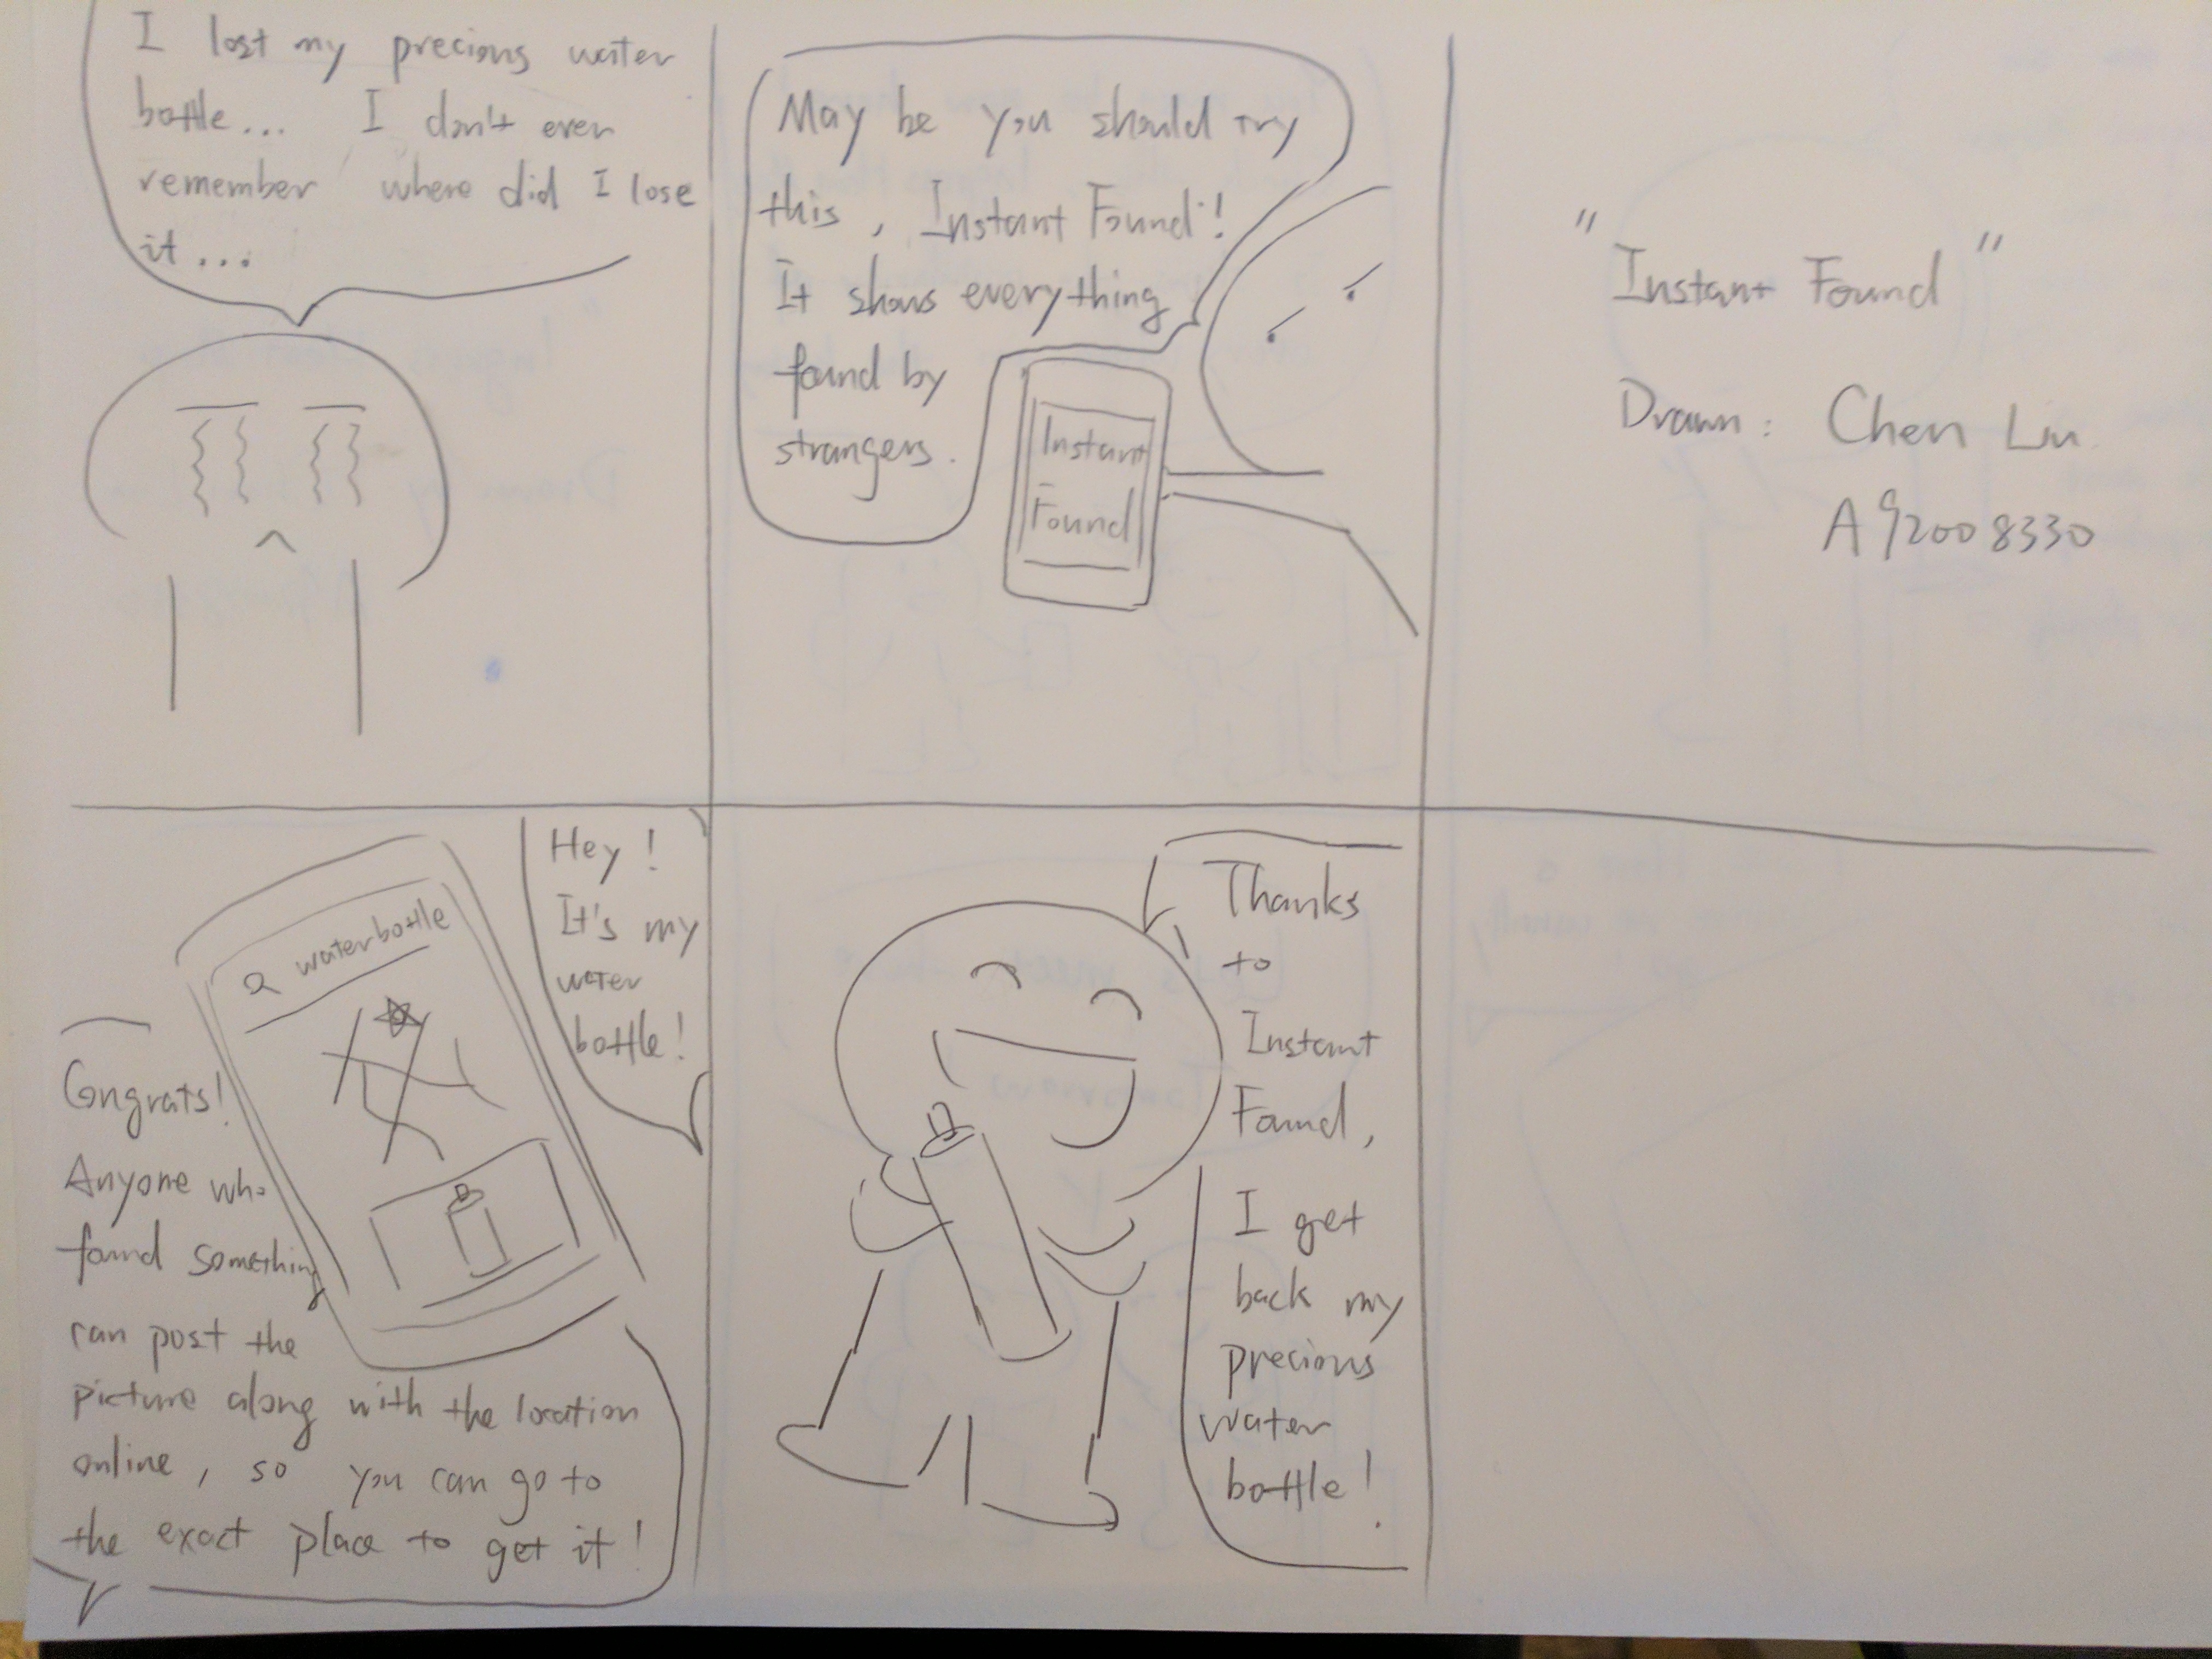 I lost my precious water
bottle... I don't even
remember where did I lose
it...
May be you should try
this, Instant Found!
It shows everything
found by
strangers.
Instant
Found
"Instant Found"
Drawn: Chen Liu
A92008330
waterbottle
Hey!
It's my
water
bottle!
Congrats!
Anyone who
found something
can post the
picture along with the location
online, so you can go to
the exact place to get it!
Thanks
to
Instant
Found,
I get
back my
precious
water
bottle!